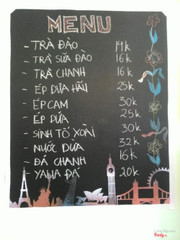 MENU
- TRÀ ĐÀO 19k
- TRÀ SỮA ĐÀO 16k
- TRÀ CHANH 16k
- ÉP DƯA HẤU 25k
- ÉP CAM 30k
- ÉP DỨA 25k
- SINH TỐ XOÀI 30k
- NƯỚC DỪA 32k
- ĐÁ CHANH 16k
- YAUA ĐÁ 20k